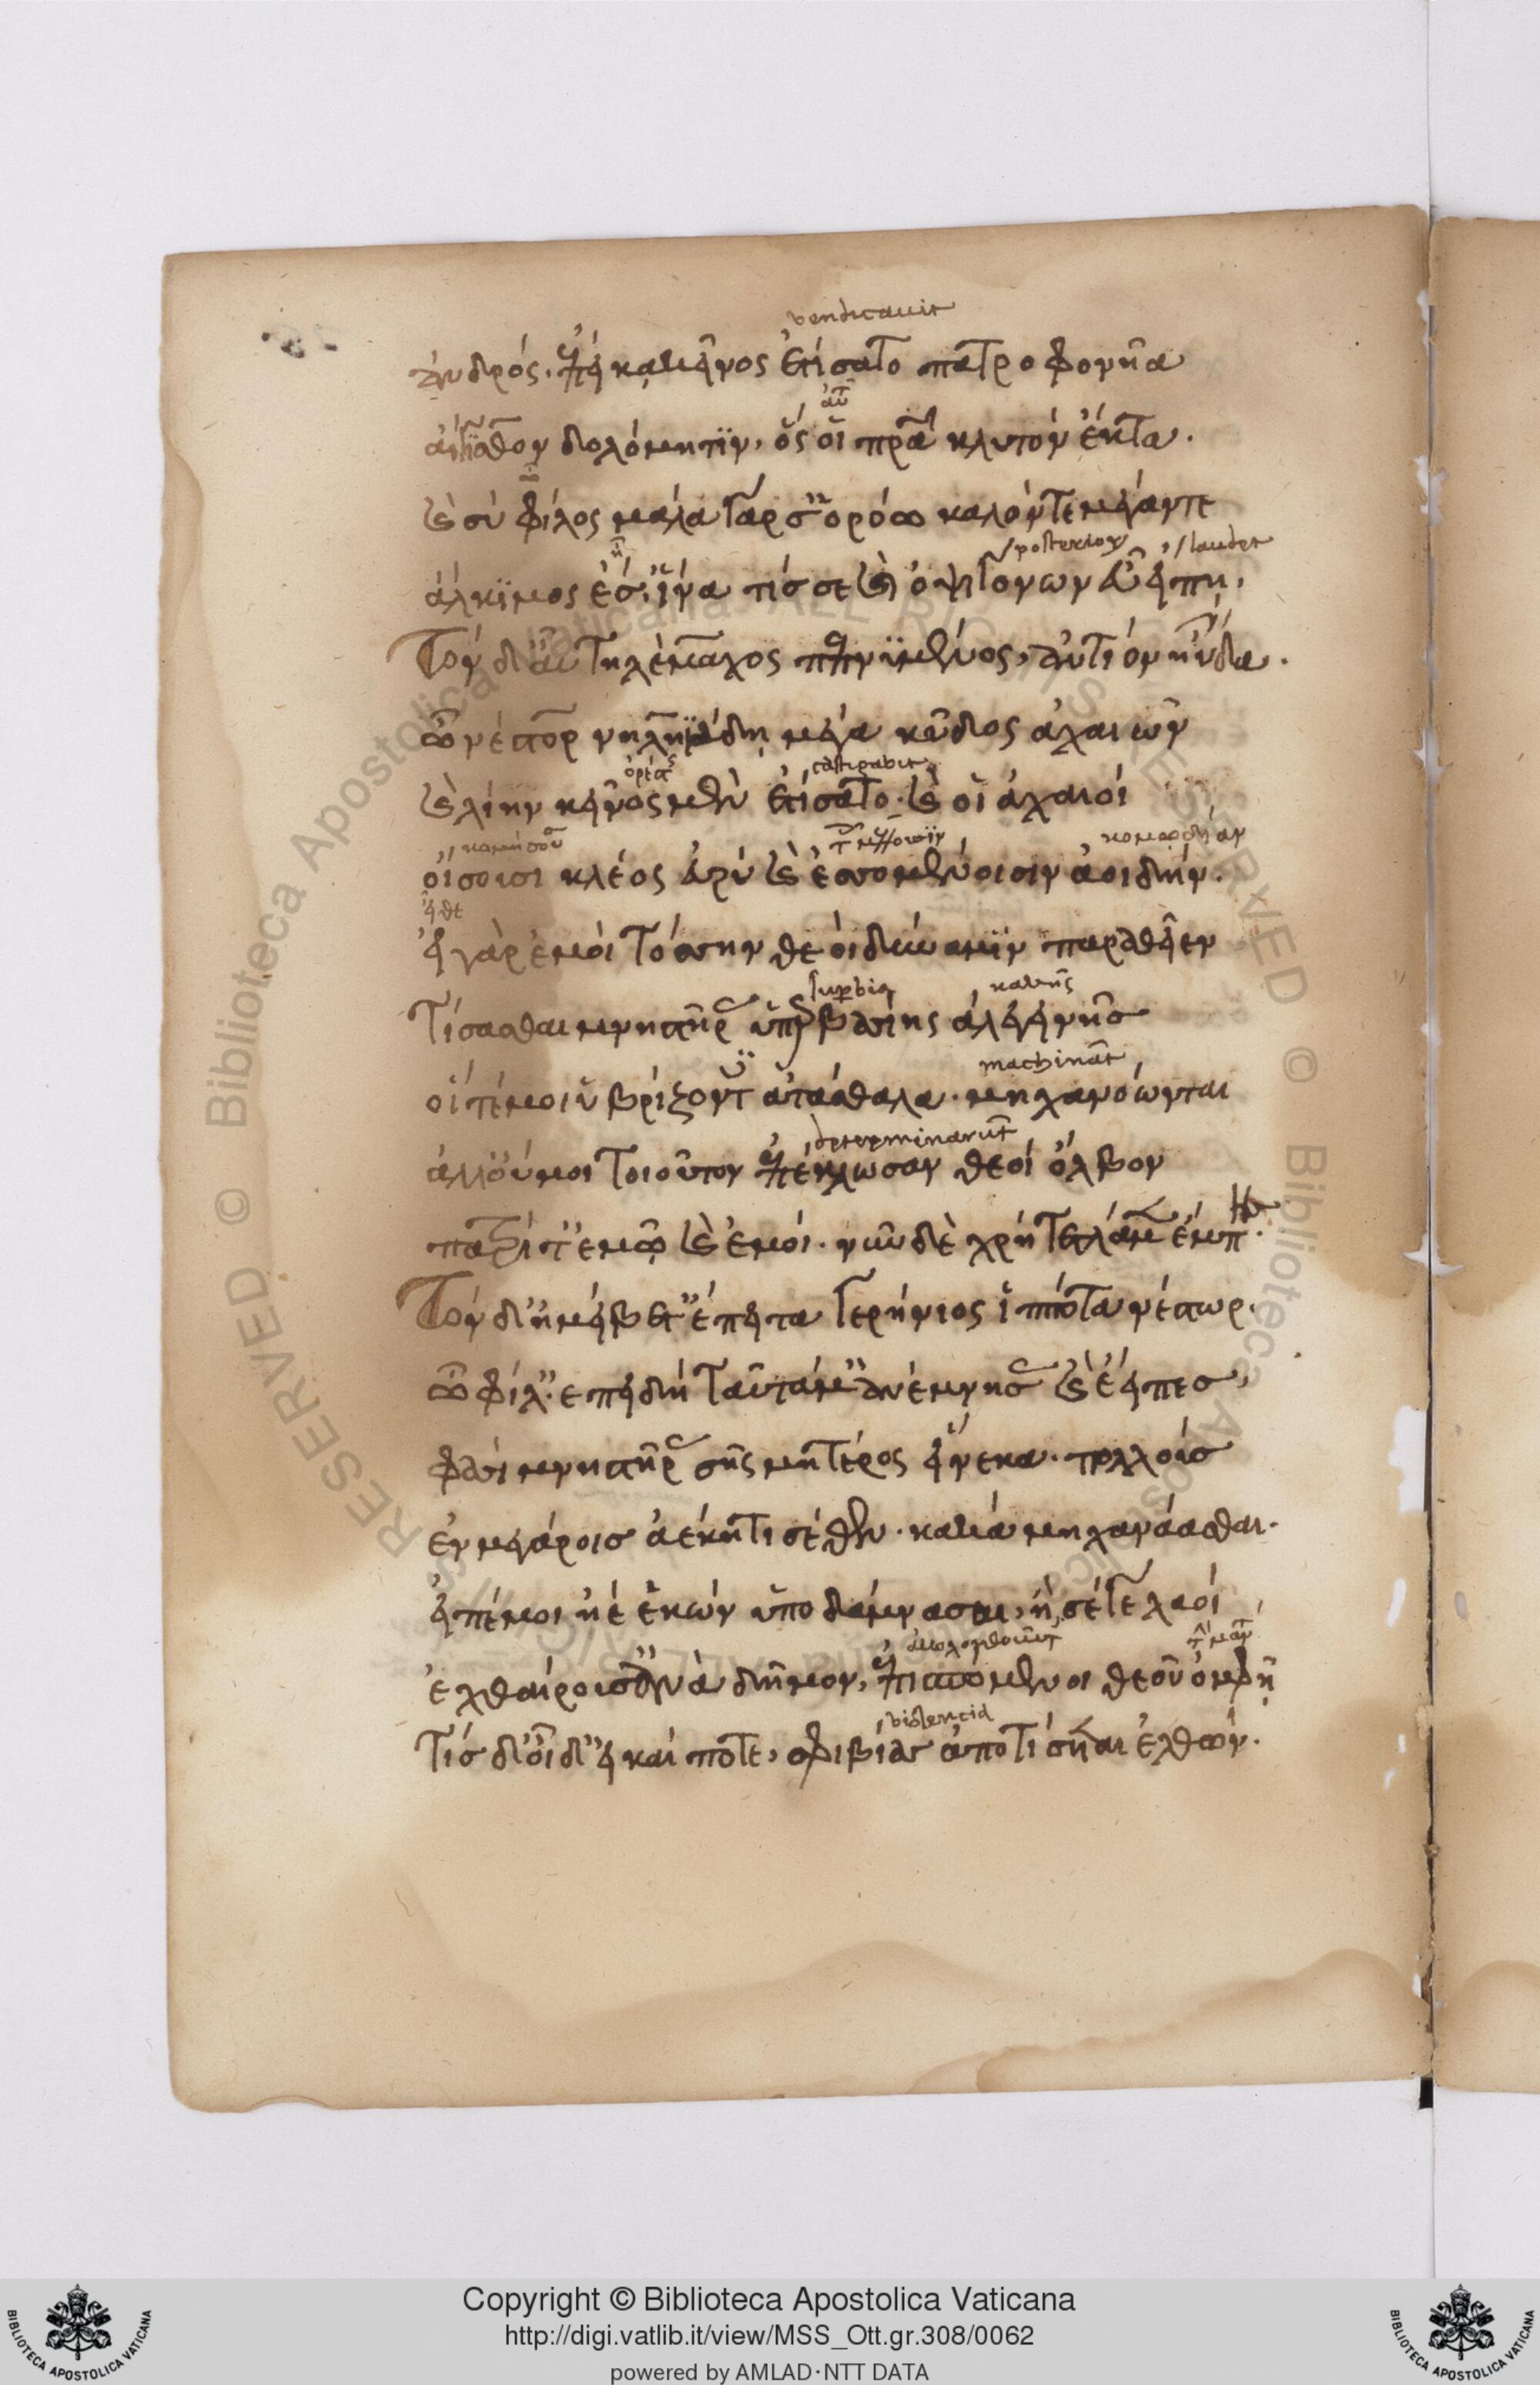 vendicauit
ἀνδρός. ἐπεὶ καὶ κεῖνος ἐτίσατο πατροφονῆα
αἴγισθον δολόμητιν, ὅς οἱ πρα κλυτὸν ἔκτα.
καὶ σὺ φίλος μάλα γάρ σ' ὁρόω καλόν τε μέγαν τε
posterior laudet
ἄλκιμος ἔσσ' ἵνα τίς σε καὶ ὀψιγόνων εὖ εἴπῃ.
Τὸν δ' αὖ τηλέμαχος πεπνυμένος, ἀντίον ηὔδα.
ὦ νέστορ νηληϊάδη μέγα κῦδος ἀχαιῶν
castigabit
καὶ λίην κεῖνος μὲν ἐτίσατο. καὶ οἱ ἀχαιοί
οἴσουσι κλέος εὐρὺ καὶ ἐσσομένοισιν ἀοιδήν.
εἴθε
εἲ γὰρ ἐμοὶ τόσσην θεοὶ δύναμιν παραθεῖεν
superbia κακῆς
τίσασθαι μνηστῆρας ὑπερβασίης ἀλεγεινῆς
machinat
οἵ τέ μοι ὑβρίζοντες ἀτάσθαλα. μηχανόωνται
determinarunt
ἀλλ' οὔ μοι τοιοῦτον ἐπέκλωσαν θεοὶ ὄλβον
πατρί τ' ἐμῷ καὶ ἐμοί. νῦν δὲ χρὴ τετλάμεν ἔμπης.
Τὸν δ' ἠμείβετ' ἔπειτα γερήνιος ἱππότα νέστωρ.
ὦ φίλ'. ἐπειδὴ ταῦτά μ' ἀνέμνησας καὶ ἔειπες,
φασὶ μνηστῆρας σῆς μητέρος εἵνεκα. πολλούς
ἐν μεγάροις ἀέκητι σέθεν. κακὰ μηχανάασθαι.
εἰπέ μοι ἠὲ ἑκὼν ὑποδάμνασαι, ἦ σέ γε λαοί
ἐχθαίρουσ' ἀνὰ δῆμον, ἐπισπόμενοι θεοῦ ὀμφῇ
violentia
τίς δ' οἶδ' εἴ καί ποτε, σφι βίας ἀποτίσεται ἐλθών.
Copyright © Biblioteca Apostolica Vaticana
http://digi.vatlib.it/view/MSS_Ott.gr.308/0062
powered by AMLAD·NTT DATA
BIBLIOTECA APOSTOLICA VATICANA
BIBLIOTECA APOSTOLICA VATICANA